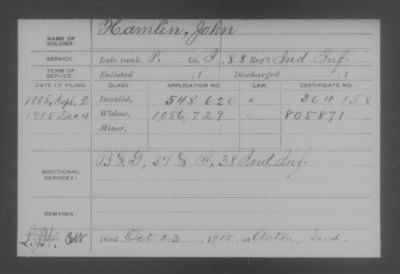 NAME OF SOLDIER: Hamlin, John
SERVICE: Late rank, P. Co. I, 88 Reg't Ind Inf.
TERM OF SERVICE: Enlisted , 1 Discharged , 1
DATE OF FILING. CLASS. APPLICATION NO. LAW. CERTIFICATE NO.
1885, Sept. 2 Invalid, 548620 " 364158
1915 Dec 4 Widow, 1,056,729 " 805871
Minor,
ADDITIONAL SERVICES: B & G, 37 & I, 38 Ind Inf.
REMARKS:
Died Oct 23, 1915, at Ind.